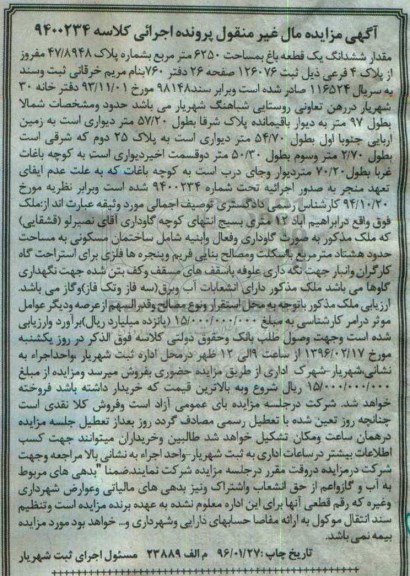 آگهی مزایده مال غیر منقول پرونده اجرائی کلاسه ۹۴۰۰۲۳۴
مقدار ششدانگ یک قطعه باغ بمساحت ۶۲۵۰ متر مربع بشماره پلاک ۴۷/۸۹۴۸ مفروز
از پلاک ۴ فرعی ذیل ثبت ۱۲۶۰۷۶ صفحه ۲۶ دفتر ۷۶۰ بنام مریم خرقانی ثبت وسند
به سریال ۱۱۶۵۲۴ صادر شده است وبرابر سند ۹۸۱۴۸ مورخ ۹۳/۱۱/۰۱ دفتر خانه ۳۰
شهریار دررهن تعاونی روستایی شباهنگ شهریار می باشد حدود ومشخصات شمالا
بطول ۹۷ متر به دیوار باقیمانده پلاک شرقا بطول ۵۷/۲۰ متر دیواری است به زمین
اربابی جنوبا اول بطول ۵۴/۷۰ متر دیواری است به پلاک ۲۵ دوم که شرقی است
بطول ۲/۷۰ متر وسوم بطول ۵۰/۳۰ متر دوقسمت اخیردیواری است به کوچه باغات
غربا بطول ۷۰/۲۰ متردیوار وجای درب است به کوچه باغات که به علت عدم ایفای
تعهد منجر به صدور اجرائیه تحت شماره ۹۴۰۰۲۳۴ شده است وبرابر نظریه مورخ
۹۴/۱۰/۲۰ کارشناس رسمی دادگستری توصیف اجمالی مورد وثیقه عبارت اند از:ملک
فوق واقع درابراهیم آباد ۱۲ متری بسیج انتهای کوچه گاوداری آقای نصیرلو (قشقایی)
که ملک مذکور به صورت گاوداری وفعال وابنیه شامل ساختمان مسکونی به مساحت
حدود هشتاد مترمربع بااسکلت ومصالح بنایی فریم وپنجره ها فلزی برای استراحت گاه
کارگران وانبار جهت نگه داری علوفه باسقف های مسقف وکف بتن شده جهت نگهداری
گاوها می باشد ملک مذکور دارای انشعابات آب وبرق(سه فاز وتک فاز)وگاز می باشد.
ارزیابی ملک مذکور باتوجه به محل استقرار ونوع مصالح وقدرالسهم ازعرصه ودیگر عوامل
موثر درامر کارشناسی به مبلغ ۱۵/۰۰۰/۰۰۰/۰۰۰ (پانزده میلیارد ریال)برآورد وارزیابی
شده است وجهت وصول طلب بانک وحقوق دولتی کلاسه فوق الذکر در روز یکشنبه
مورخ ۱۳۹۶/۰۲/۱۷ از ساعت ۹الی ۱۲ ظهر درمحل اداره ثبت شهریار ،واحداجراء به
نشانی،شهریار-شهرک اداری از طریق مزایده حضوری بفروش میرسد ومزایده از مبلغ
۱۵/۰۰۰/۰۰۰/۰۰۰ ریال شروع وبه بالاترین قیمت که خریدار داشته باشد فروخته
خواهد شد. شرکت درجلسه مزایده بای عمومی آزاد است وفروش کلا نقدی است
چنانچه روز تعین شده با تعطیل رسمی مصادف گردد روز بعداز تعطیل جلسه مزایده
درهمان ساعت ومکان تشکیل خواهد شد طالبین وخریداران میتوانند جهت کسب
اطلاعات بیشتر درساعات اداری به ثبت شهریار-واحد اجراء به نشانی بالا مراجعه وجهت
شرکت درمزایده دروقت مقرر درجلسه مزایده شرکت نمایندضمنا "بدهی های مربوط
به آب و گازواعم از حق انشعاب واشتراک ونیز بدهی های مالیاتی وعوارض شهرداری
وغیره که رقم قطعی آنها برای این اداره معلوم نشده به عهده برنده مزایده است وتنظیم
سند انتقال موکول به ارائه مفاصا حسابهای دارایی وشهرداری و... خواهد بود مورد مزایده
بیمه نمی باشد.
تاریخ چاپ :۹۶/۰۱/۲۷ م الف ۲۳۸۸۹ مسئول اجرای ثبت شهریار